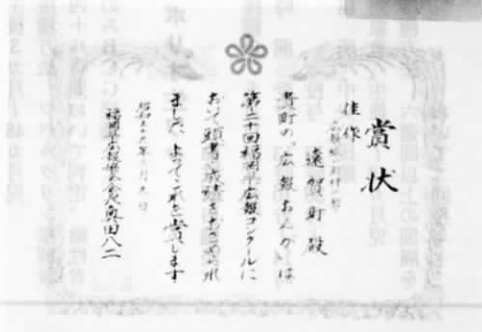 賞状
佳作
遠賀町殿
貴町の「広報おんが」は
第二十回福岡県広報コンクールに
おいて顕著な成績をおさめられ
ました よってこれを賞します
福岡県広報協会会長 奥田八二